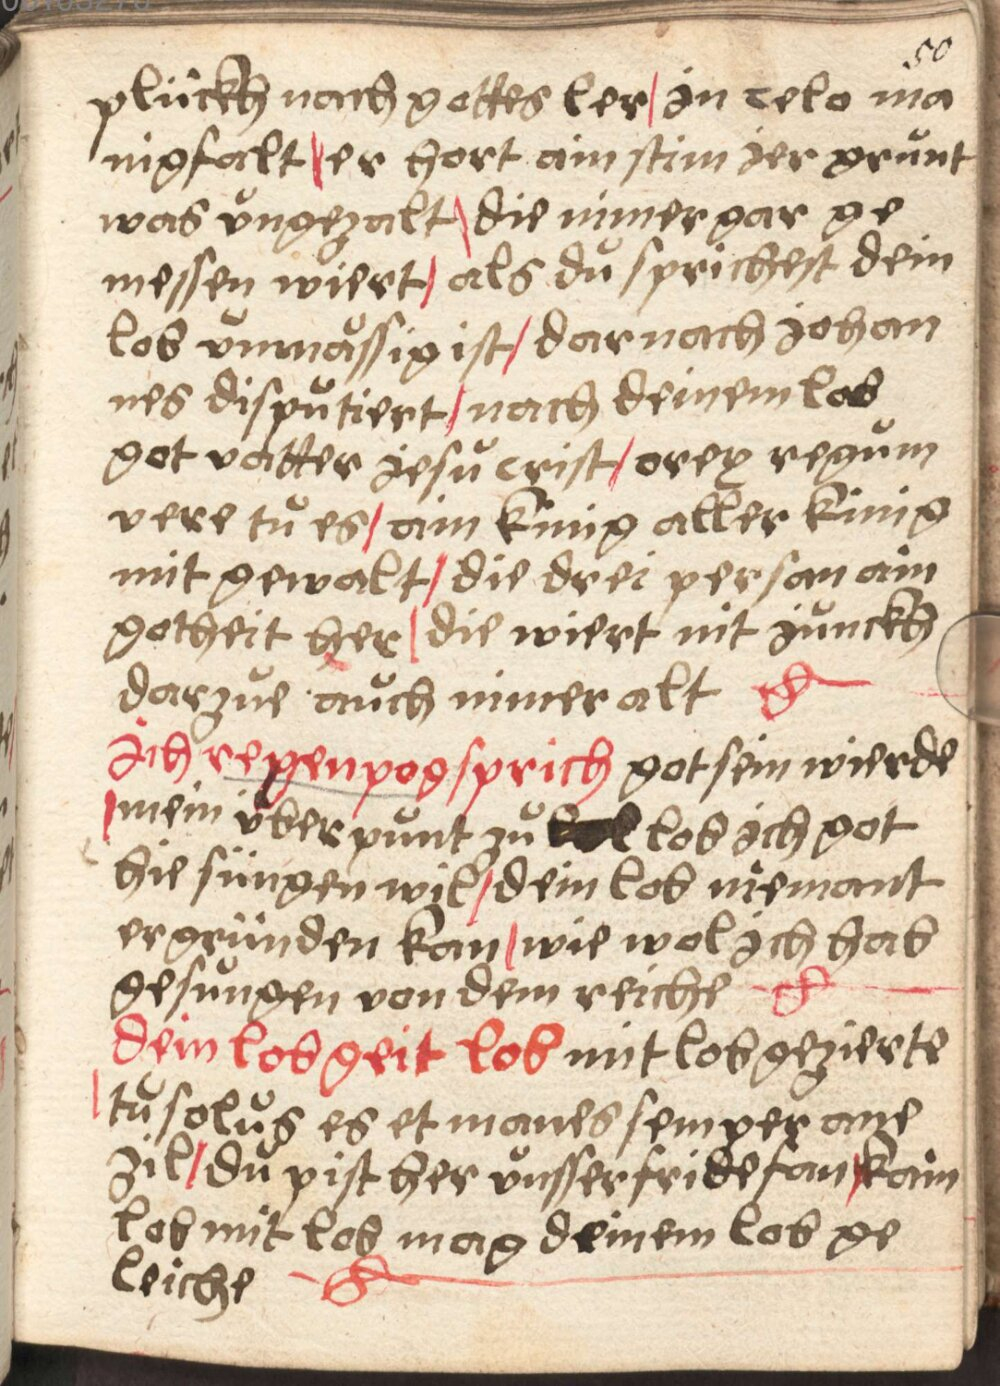 50
plückh nach gottes ler / jn celo ma
nigfalt / er hort ain stim jer grunt
was ůngezalt / die nimer gar ge
messen wiert / als dů sprichest dein
lob ůnmåssig ist / dar nach johan
nes dispůtiert / nach deinem lob
got vatter jesů crist / o rex regům
vere tů es / ain kinig aller kinig
mit gewalt / die drei person ain
gotheit her / die wiert nit jůnckh
darzue aůch nimer alt
Jch regenpog sprich got sein wierde
mein ůber punt zů lob jch got
hie singen wil / dein lob niemant
ergründen kan / wie wol jch hab
gesůngen von dem reiche
dein lob geit lob mit lob gezierte
tů solůs es et manes semper ane
zil / dů pist her ůnsser fride fan / kain
lob mit lob mag deinem lob ge
leiche